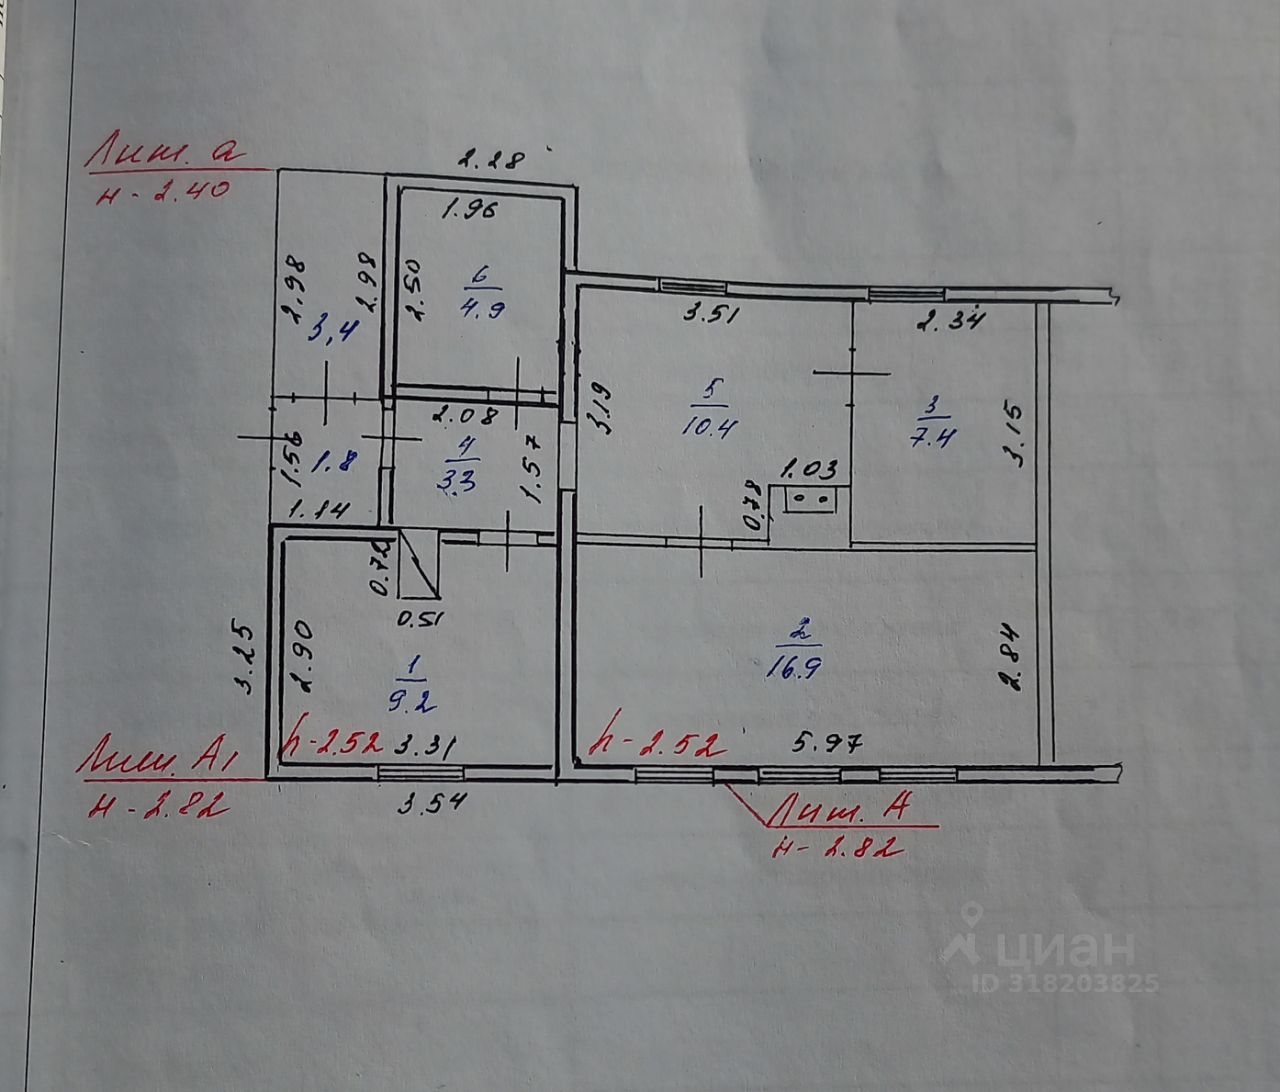 Лит. а
н - 2.40
2.28
1.96
2.98
2.98
2.50
6
4.9
3,4
3.51
2.34
3.19
5
10.4
3
7.4
3.15
2.08
1.56
1.8
4
3.3
1.57
1.03
0.78
1.14
0.72
0.51
3.25
2.90
1
9.2
2
16.9
2.84
h-2.52
3.31
h-2.52
5.97
Лит. А1
н - 2.82
3.54
Лит. А
н - 2.82
циан
ID 318203825